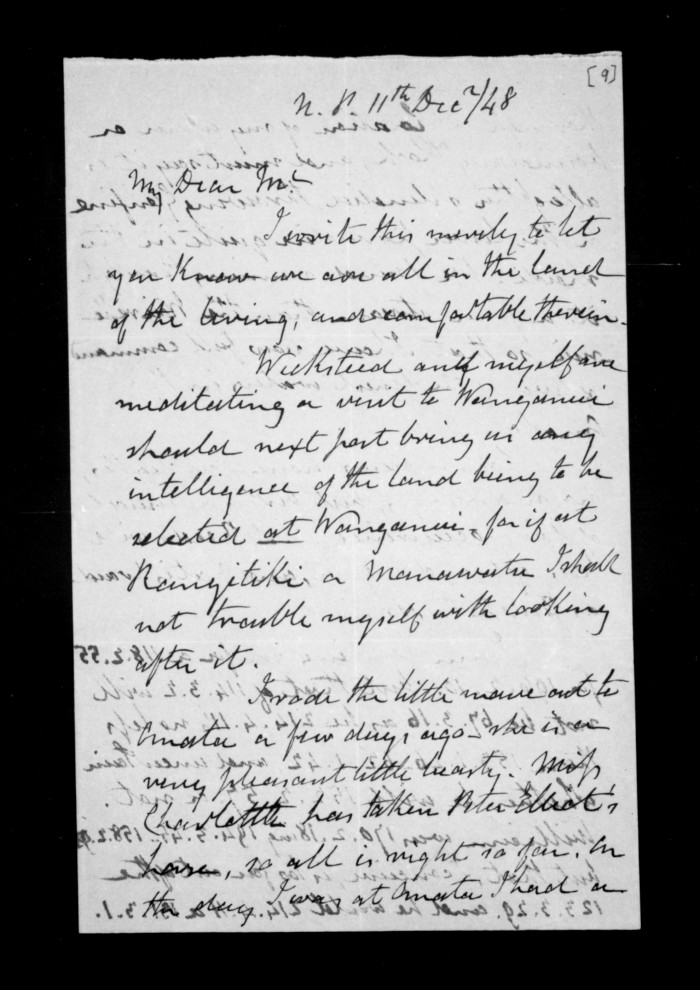 [9]
N. P. 11th Decr/48
My Dear Mc
I write this merely to let
you know we are all in the land
of the living, and comfortable therein.
Wicksteed and myself are
meditating a visit to Wanganui
should next post bring us any
intelligence of the land being to be
selected at Wanganui, for if at
Rangitiki or Manawatu I shall
not trouble myself with looking
after it.
I rode the little mare out to
Omata a few days ago - she is a
very pleasant little beasty. Miss
Charlotte has taken Peter Elliot's
horse, so all is right so far. On
the day I was at Omata I had a